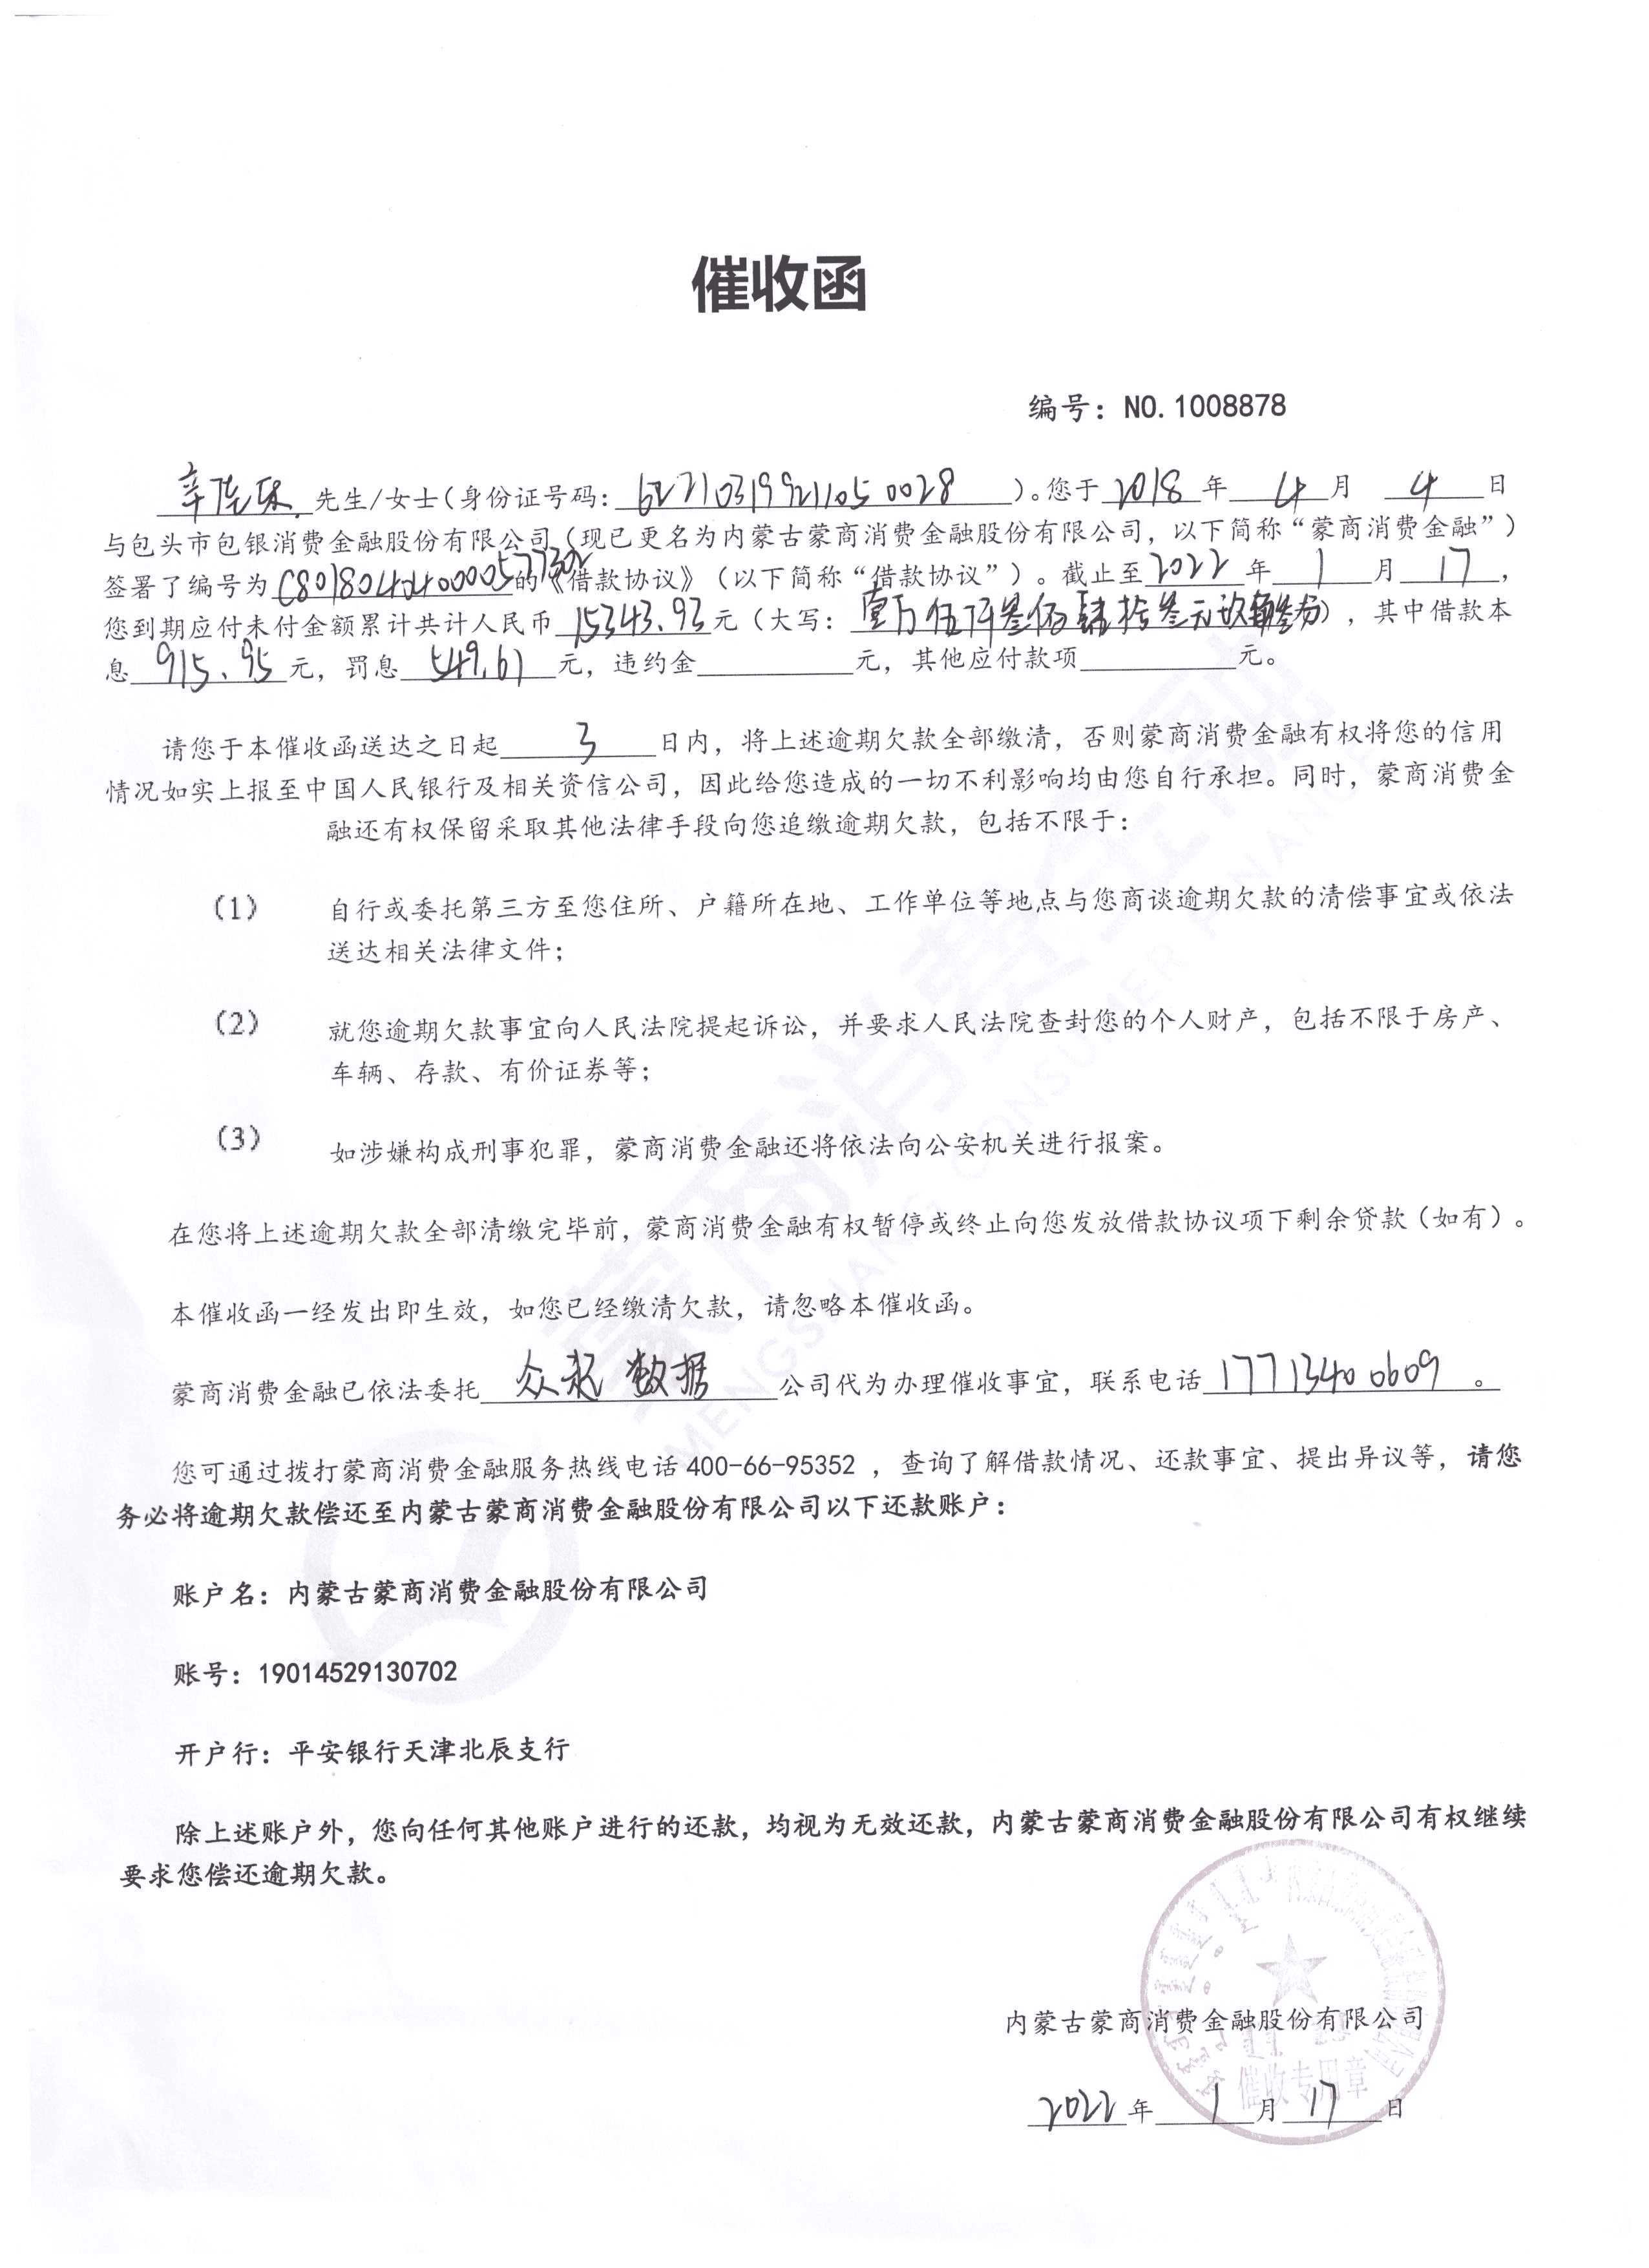 催收函
编号：NO.1008878
辛 先生/女士（身份证号码：622710319921105 0028）。您于 2018 年 4 月 4 日
与包头市包银消费金融股份有限公司（现已更名为内蒙古蒙商消费金融股份有限公司，以下简称“蒙商消费金融”）
签署了编号为 的《借款协议》（以下简称“借款协议”）。截止至 2022 年 1 月 17，
您到期应付未付金额累计共计人民币 15343.93 元（大写：壹万伍仟叁佰肆拾叁元玖角叁分），其中借款本
息 915.95 元，罚息 549.61 元，违约金 元，其他应付款项 元。
请您于本催收函送达之日起 3 日内，将上述逾期欠款全部缴清，否则蒙商消费金融有权将您的信用
情况如实上报至中国人民银行及相关资信公司，因此给您造成的一切不利影响均由您自行承担。同时，蒙商消费金
融还有权保留采取其他法律手段向您追缴逾期欠款，包括不限于：
（1） 自行或委托第三方至您住所、户籍所在地、工作单位等地点与您商谈逾期欠款的清偿事宜或依法
送达相关法律文件；
（2） 就您逾期欠款事宜向人民法院提起诉讼，并要求人民法院查封您的个人财产，包括不限于房产、
车辆、存款、有价证券等；
（3） 如涉嫌构成刑事犯罪，蒙商消费金融还将依法向公安机关进行报案。
在您将上述逾期欠款全部清缴完毕前，蒙商消费金融有权暂停或终止向您发放借款协议项下剩余贷款（如有）。
本催收函一经发出即生效，如您已经缴清欠款，请忽略本催收函。
蒙商消费金融已依法委托 众起 数据 公司代为办理催收事宜，联系电话 17713400609 。
您可通过拨打蒙商消费金融服务热线电话 400-66-95352 ，查询了解借款情况、还款事宜、提出异议等，请您
务必将逾期欠款偿还至内蒙古蒙商消费金融股份有限公司以下还款账户：
账户名：内蒙古蒙商消费金融股份有限公司
账号：19014529130702
开户行：平安银行天津北辰支行
除上述账户外，您向任何其他账户进行的还款，均视为无效还款，内蒙古蒙商消费金融股份有限公司有权继续
要求您偿还逾期欠款。
内蒙古蒙商消费金融股份有限公司
催收专用章
2022 年 1 月 17 日
蒙商消费金融
MENGSHANG CONSUMER FINANCE